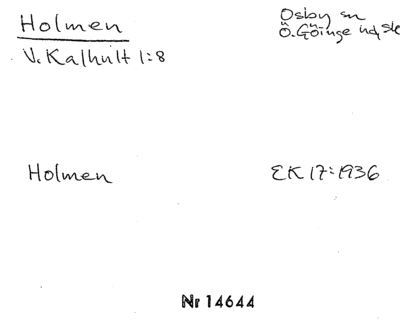 Holmen
V. Kalhult 1:8
Osby sn
Ö. Göinge hd, sk
Holmen
EK 17:1936
Nr 14644